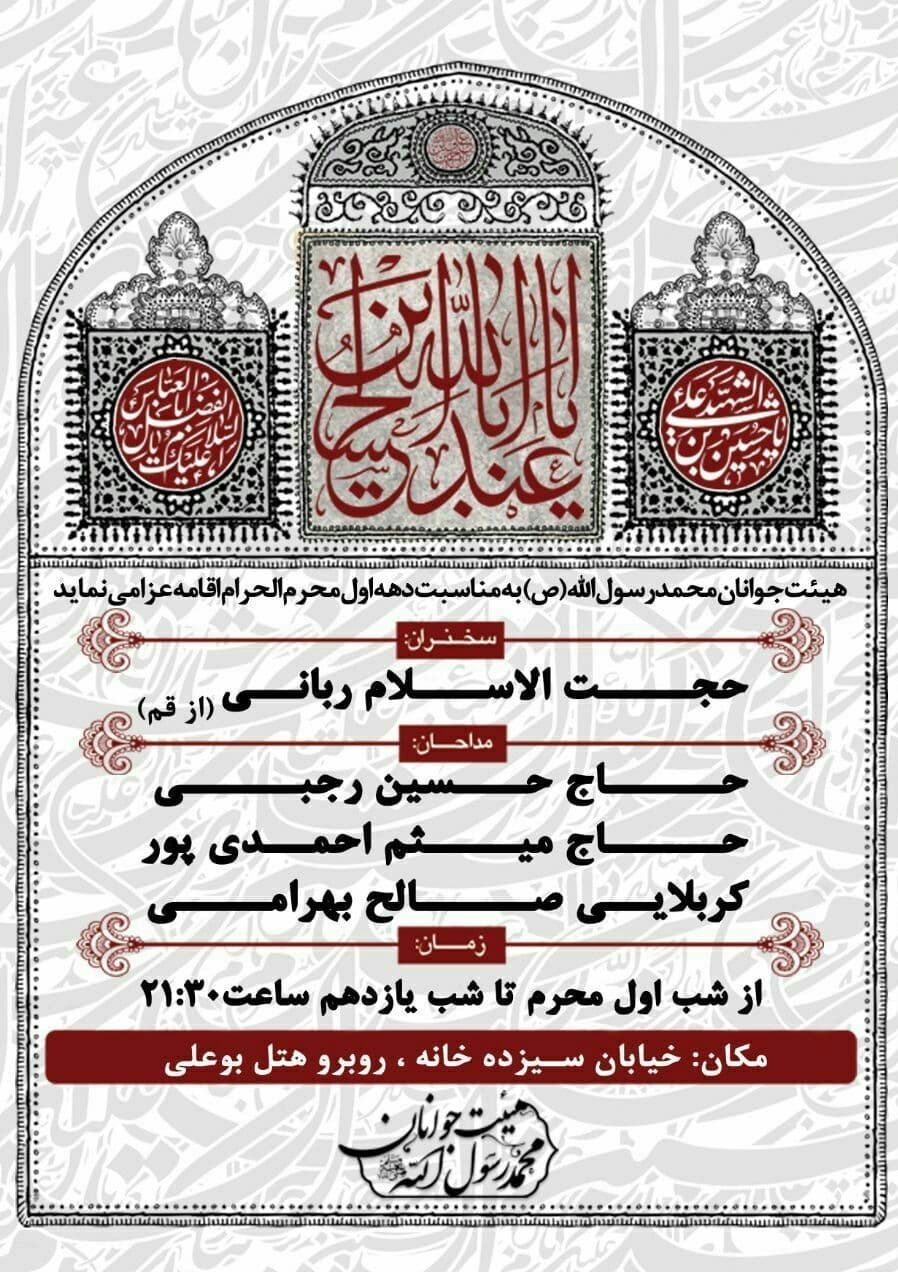 یا اباعبدالله الحسین
یا حسین بن علی الشهید
السلام علیک یا اباالفضل العباس
هیئت جوانان محمد رسول الله (ص) به مناسبت دهه اول محرم الحرام اقامه عزا می نماید
سخنران:
حجت الاسلام ربانی (از قم)
مداحان:
حاج حسین رجبی
حاج میثم احمدی پور
کربلایی صالح بهرامی
زمان:
از شب اول محرم تا شب یازدهم ساعت ۲۱:۳۰
مکان: خیابان سیزده خانه ، روبرو هتل بوعلی
هیئت جوانان
محمد رسول الله